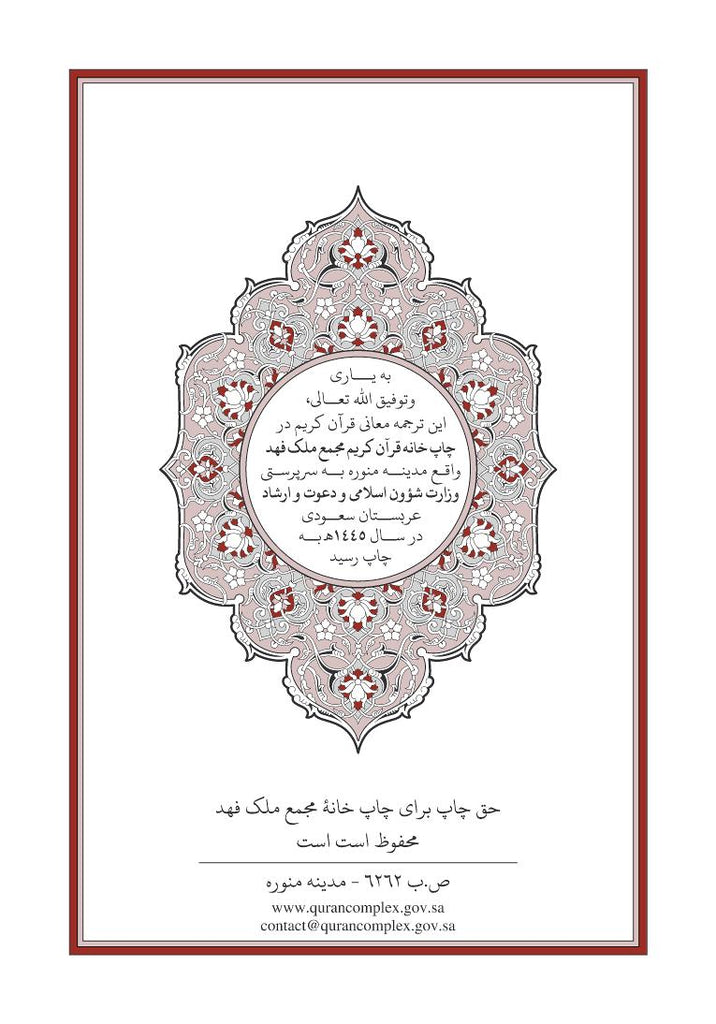 به یـــاری
وتوفیق الله تعـالی،
این ترجمه معانی قرآن کریم در
چاپ خانه قرآن کریم مجمع ملک فهد
واقع مدینـــه منوره بـــه سرپرستی
وزارت شؤون اسلامی و دعوت و ارشاد
عربســتان سعــودی
در ســال ١٤٤٥هـ بــه
چاپ رسید
حق چاپ برای چاپ خانۀ مجمع ملک فهد
محفوظ است است
ص.ب ٦٢٦٢ - مدینه منوره
www.qurancomplex.gov.sa
contact@qurancomplex.gov.sa